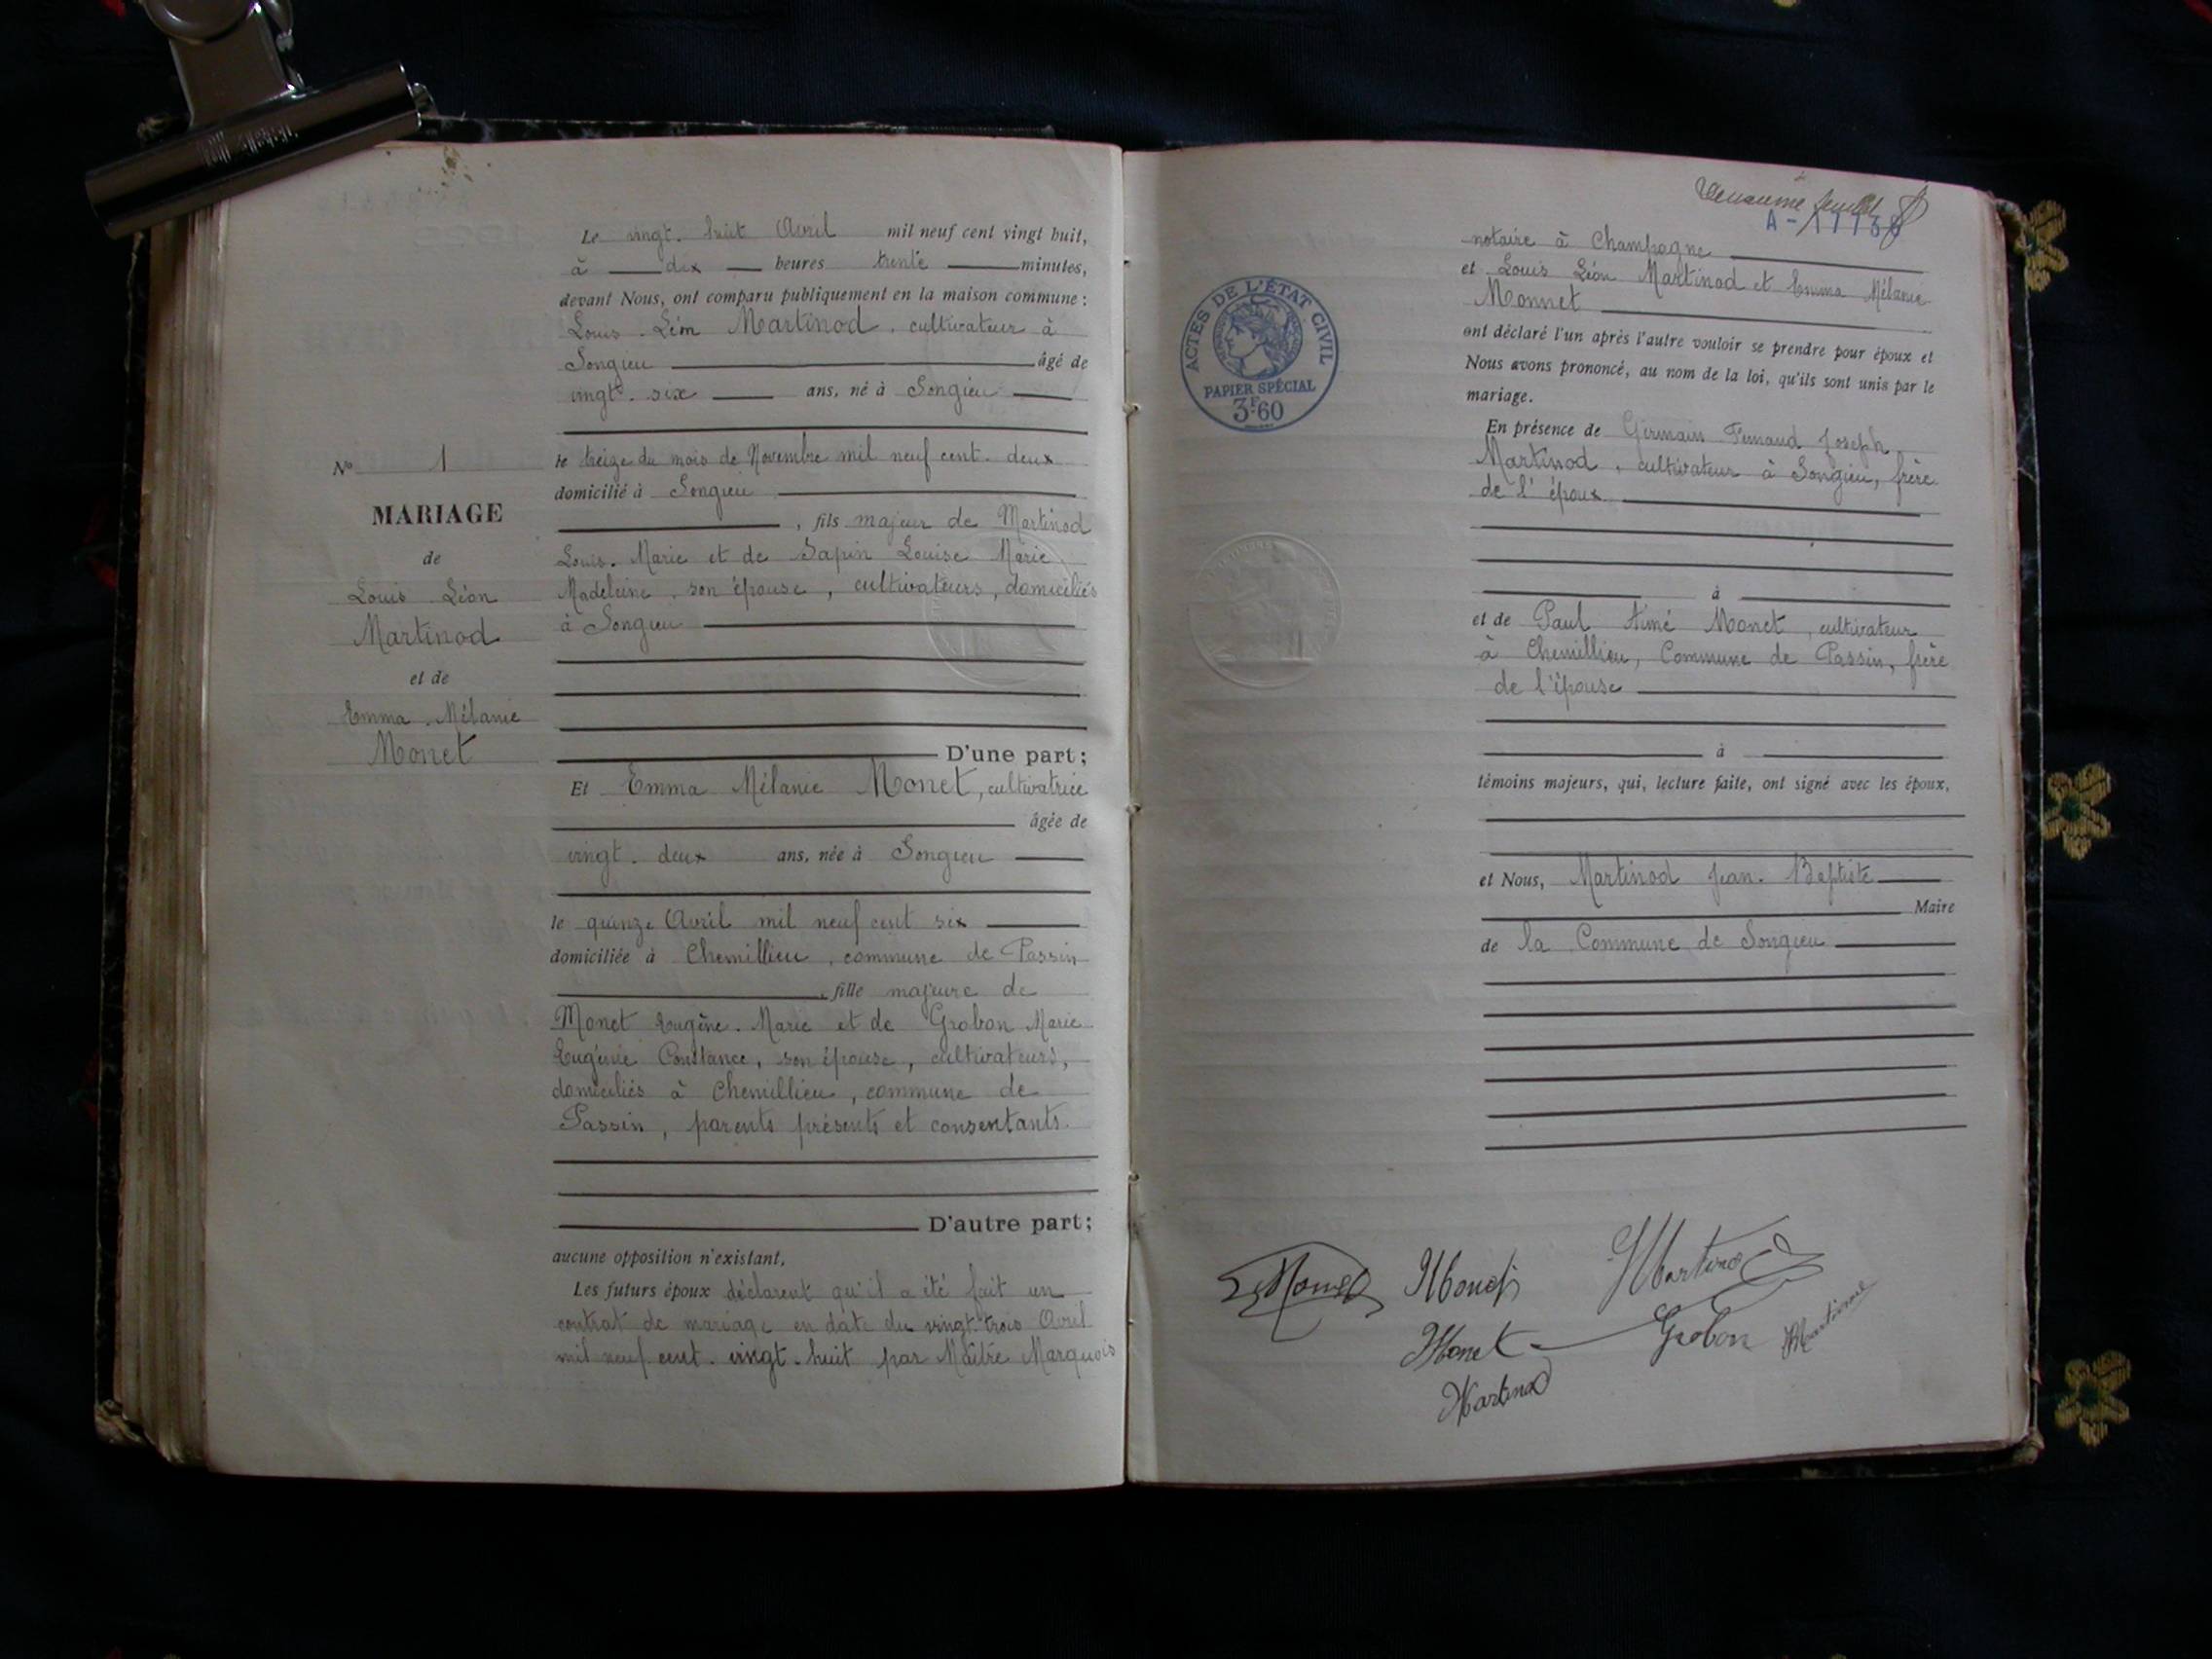 Le vingt. huit Avril mil neuf cent vingt huit,
à dix heures trente minutes,
devant Nous, ont comparu publiquement en la maison commune :
Louis. Léon Martinod, cultivateur à
Songieu âgé de
vingt. six ans, né à Songieu
le treize du mois de Novembre mil neuf cent. deux
domicilié à Songieu
, fils majeur de Martinod
Louis. Marie et de Sapin Louise Marie
Madeleine, son épouse, cultivateurs, domiciliés
à Songieu
D'une part;
Et Emma Mélanie Monet, cultivatrice
âgée de
vingt. deux ans, née à Songieu
le quinze Avril mil neuf cent six
domiciliée à Chemillieu, commune de Passin
, fille majeure de
Monet Eugène. Marie et de Grobon Marie
Eugénie Constance, son épouse, cultivateurs,
domiciliés à Chemillieu, commune de
Passin, parents présents et consentants.
D'autre part;
aucune opposition n'existant,
Les futurs époux déclarent qu'il a été fait un
contrat de mariage en date du vingt. trois Avril
mil neuf cent. vingt. huit par Maître Marquois
N° 1
MARIAGE
de
Louis Léon
Martinod
et de
Emma. Mélanie
Monet
Deuxième feuillet
A-
notaire à Champagne
et Louis Léon Martinod et Emma Mélanie
Monnet
ont déclaré l'un après l'autre vouloir se prendre pour époux et
Nous avons prononcé, au nom de la loi, qu'ils sont unis par le
mariage.
En présence de Germain Fernand Joseph
Martinod, cultivateur à Songieu, frère
de l'époux
à
et de Paul Aimé Monet, cultivateur
à Chemillieu, Commune de Passin, frère
de l'épouse
à
témoins majeurs, qui, lecture faite, ont signé avec les époux,
et Nous, Martinod Jean. Baptiste
Maire
de la Commune de Songieu
ACTES DE L'ÉTAT CIVIL
PAPIER SPÉCIAL
3F.60
Monet
Martinod
Monet
Grobon
Martinod